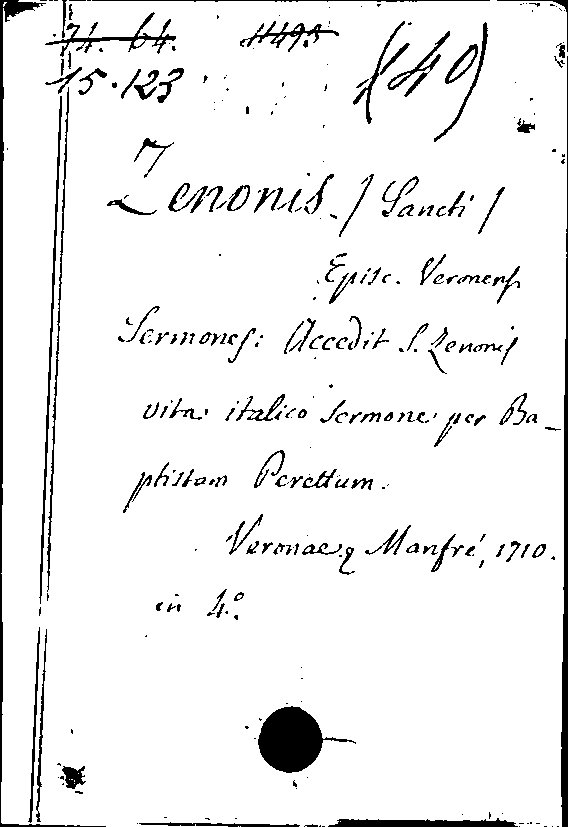 74. 64. 11493
15.123 (40)
Zenonis / Sancti /
Episc. Veronens
Sermones: Accedit S. Zenonis
vita italico sermone per Ba-
ptistam Perettum.
Veronae, Manfré, 1710.
in 4.º